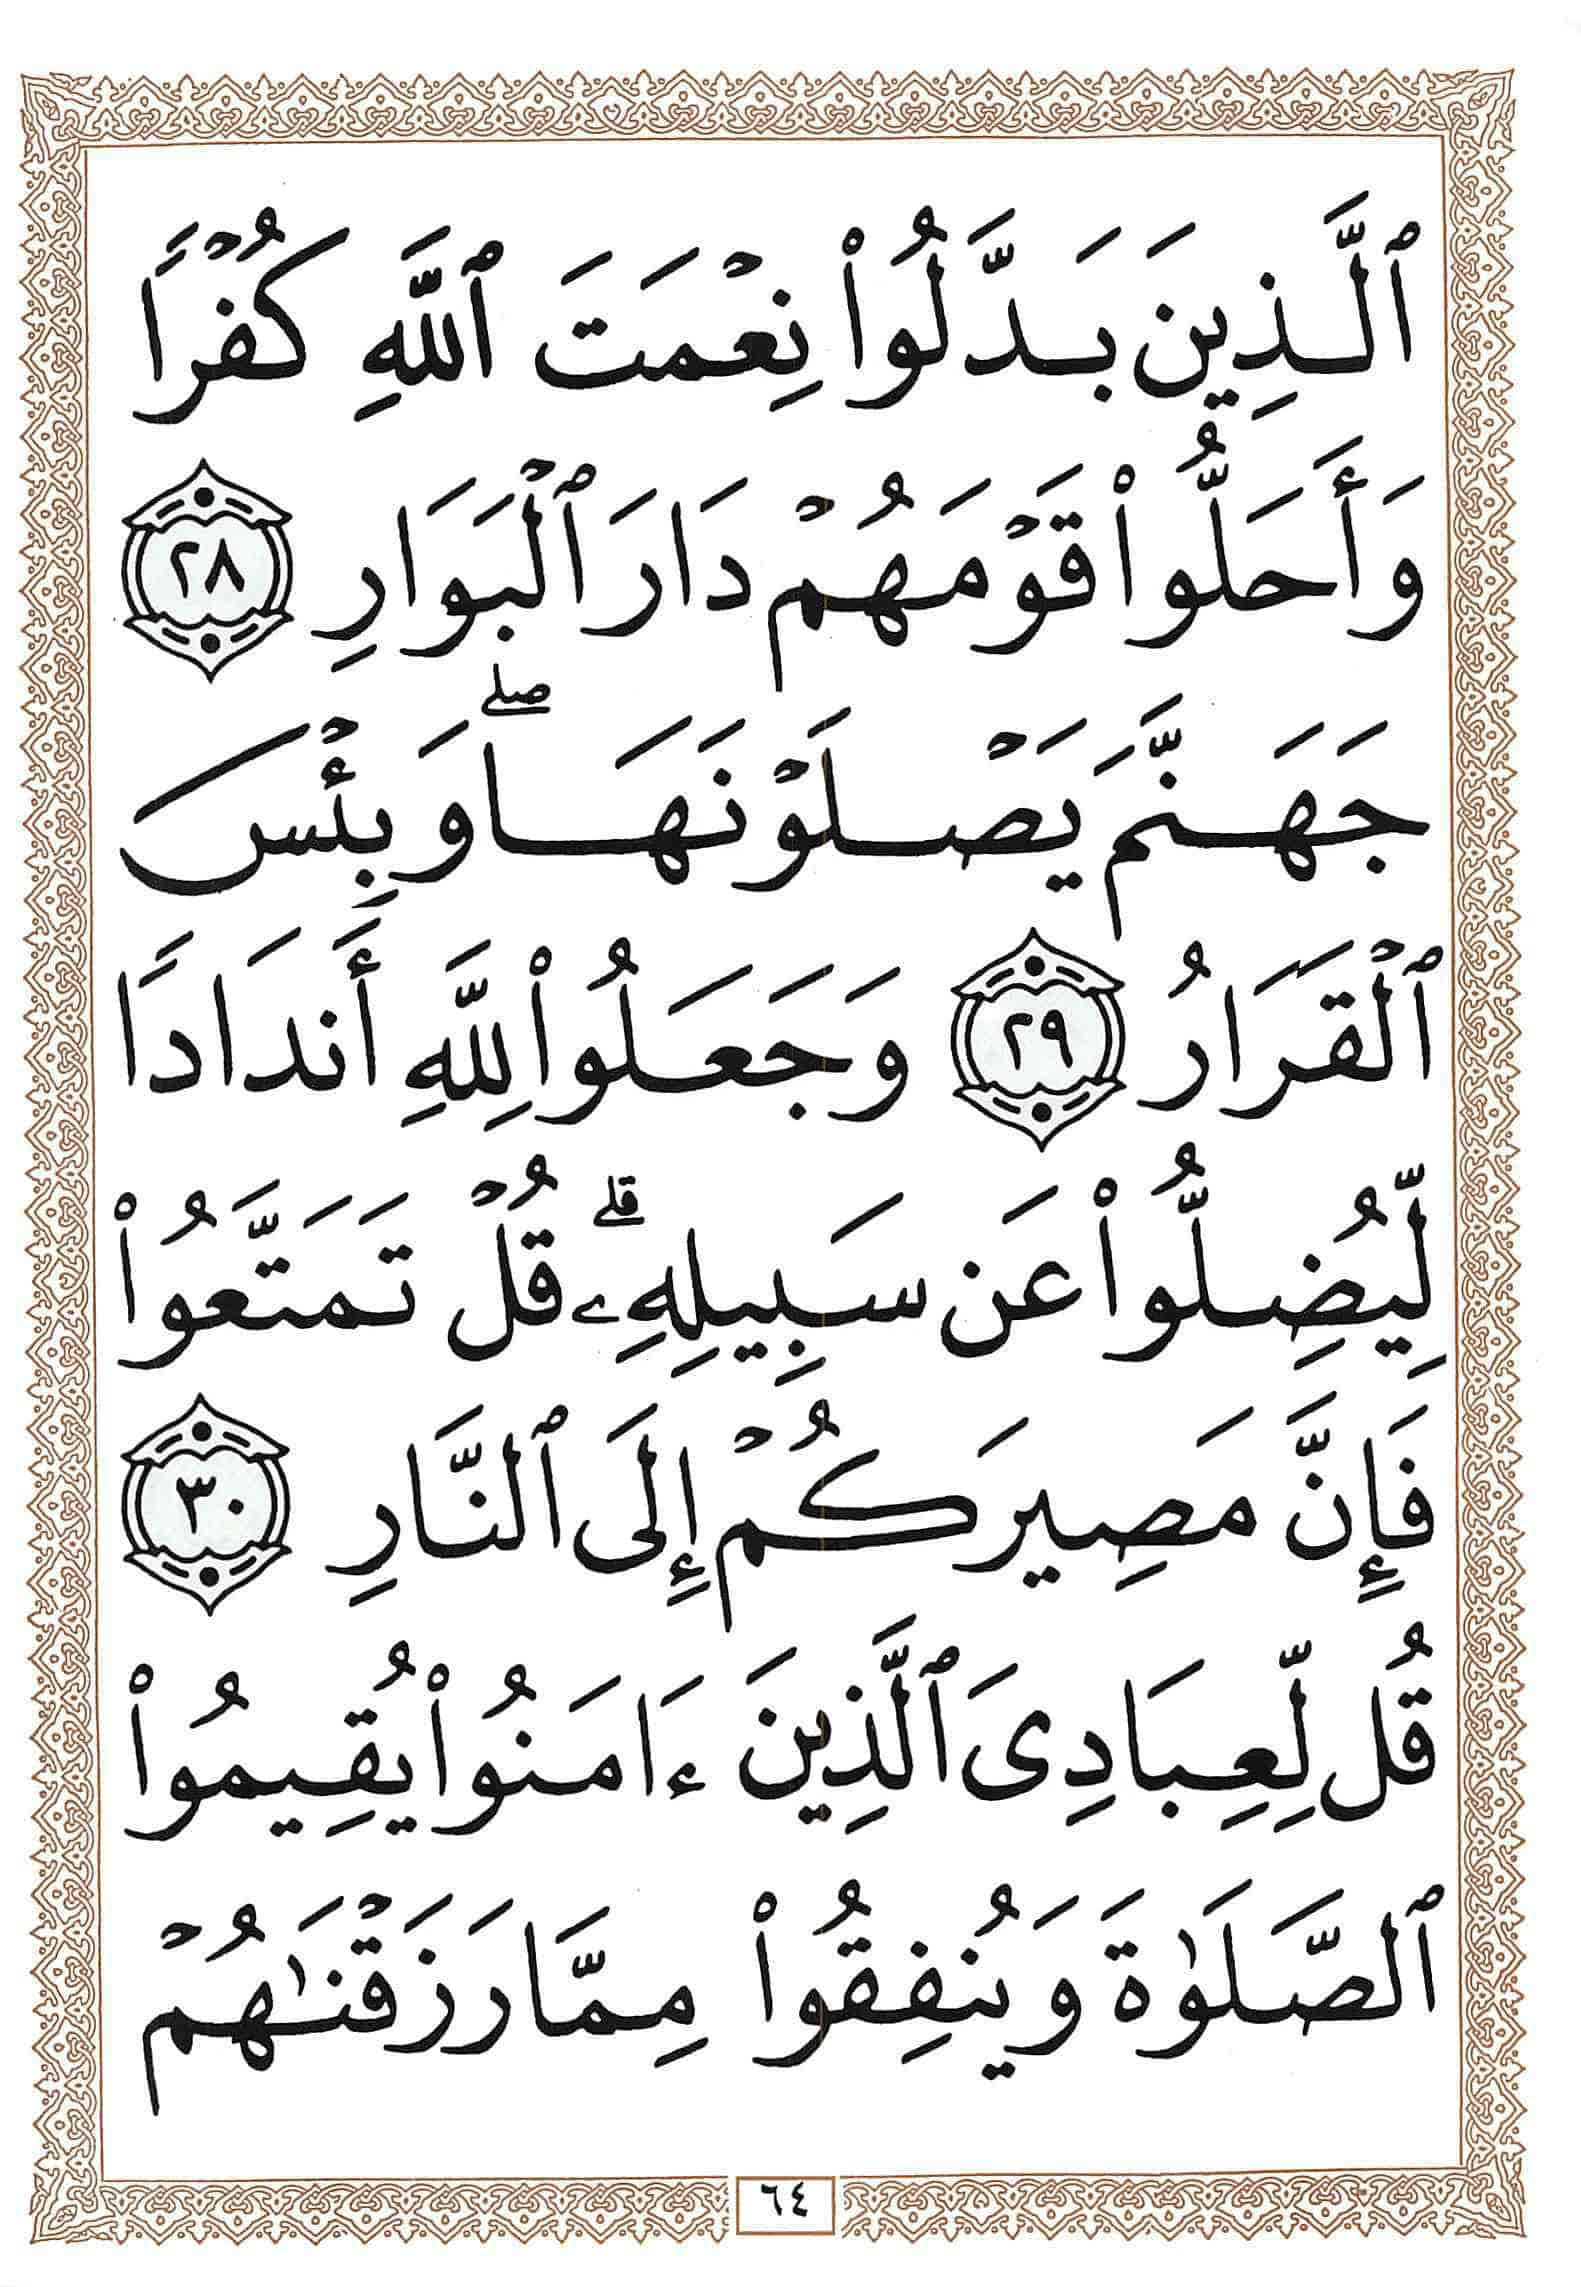 ٱلَّذِينَ بَدَّلُوا۟ نِعْمَتَ ٱللَّهِ كُفْرًا
وَأَحَلُّوا۟ قَوْمَهُمْ دَارَ ٱلْبَوَارِ ٢٨
جَهَنَّمَ يَصْلَوْنَهَا ۖ وَبِئْسَ
ٱلْقَرَارُ ٢٩ وَجَعَلُوا۟ لِلَّهِ أَندَادًا
لِّيُضِلُّوا۟ عَن سَبِيلِهِۦ ۗ قُلْ تَمَتَّعُوا۟
فَإِنَّ مَصِيرَكُمْ إِلَى ٱلنَّارِ ٣٠
قُل لِّعِبَادِىَ ٱلَّذِينَ ءَامَنُوا۟ يُقِيمُوا۟
ٱلصَّلَوٰةَ وَيُنفِقُوا۟ مِمَّا رَزَقْنَـٰهُمْ
٦٤